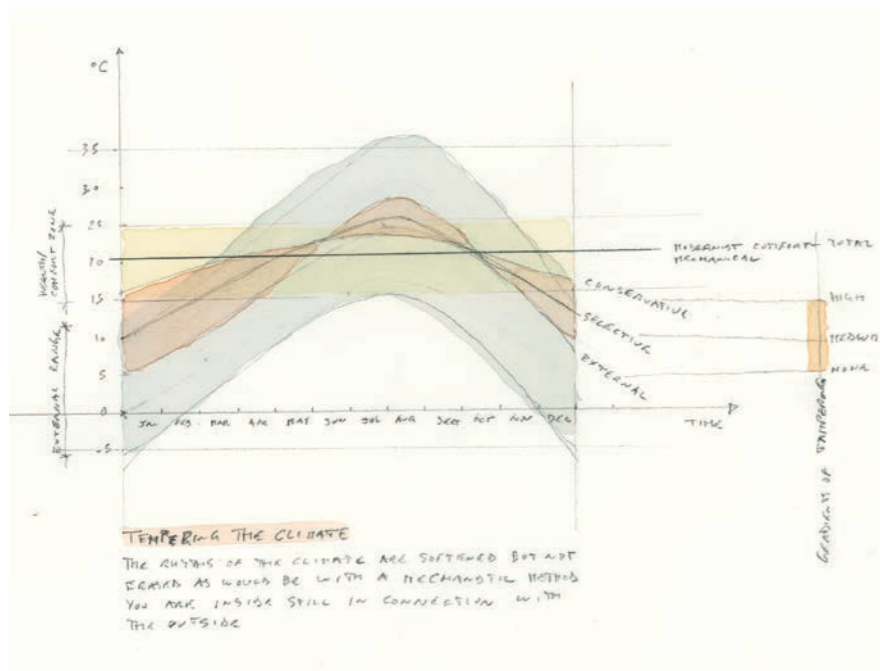 °C
35
30
25
20
15
10
5
0
-5
HEALTH/
COMFORT ZONE
EXTERNAL RANGE
JN FEB MAR APR MAY JUN JUL AUG SEPT OCT NOV DEC
TIME
MODERNIST COMFORT
MECHANICAL
CONSERVATIVE
SELECTIVE
EXTERNAL
TOTAL
HIGH
MEDIUM
NONE
GRADIENTS OF TAMPERING
TEMPERING THE CLIMATE
THE RHYTHMS OF THE CLIMATE ARE SOFTENED BUT NOT
ERASED AS WOULD BE WITH A MECHANISTIC METHOD
YOU ARE INSIDE STILL IN CONNECTION WITH
THE OUTSIDE